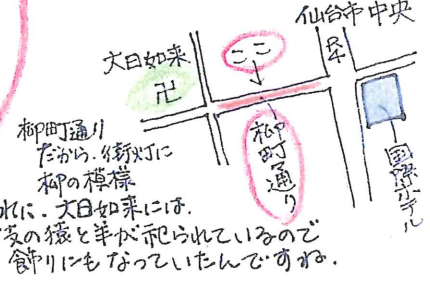 仙台市中央
大日如来
ここ
R4
卍
柳町通り
国際ホテル
柳町通り
だから、街灯に
柳の模様
れに、大日如来には、
支の猿と羊が祀られているので
飾りにもなっていたんですね。